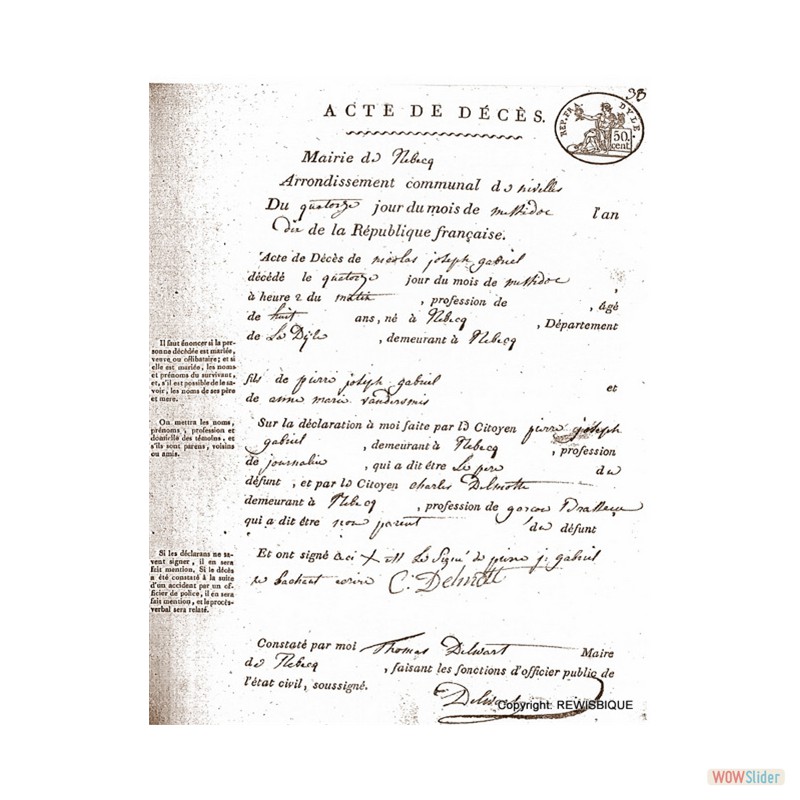 38
ACTE DE DÉCÈS.
REP. FRA. DYLE.
50. cent
Mairie de Rebecq
Arrondissement communal de nivelles
Du quatorze jour du mois de messidor l'an
dix de la République française.
Acte de Décès de nicolas joseph gabriel
décédé le quatorze jour du mois de messidor ,
à heure 2 du matin , profession de , âgé
de huit ans, né à Rebecq , Département
de La Dyle , demeurant à Rebecq
Il faut énoncer si la per-
sonne décédée est mariée,
veuve ou célibataire; et si
elle est mariée, les noms
et prénoms du survivant,
et, s'il est possible de le sa-
voir, les noms de ses père
et mere.
fils de pierre joseph gabriel et
de anne marie vandersmis
On mettra les noms,
prénoms, profession et
domicile des témoins, et
s'ils sont parens, voisins
ou amis.
Sur la déclaration à moi faite par le Citoyen pierre joseph
gabriel , demeurant à Rebecq , profession
de journalier , qui a dit être Le pere du
défunt, et par le Citoyen charles Delmotte
demeurant à Rebecq , profession de garcon Brasseur
qui a dit être non parent du défunt
Si les déclarans ne sa-
vent signer, il en sera
fait mention. Si le décès
a été constaté à la suite
d'un accident par un of-
ficier de police, il en sera
fait mention, et le procès-
verbal sera relaté.
Et ont signé ceci X est Le Signé de pierre j. gabriel
ne sachant ecrire C. Delmott
Constaté par moi Thomas Delwart Maire
de Rebecq , faisant les fonctions d'officier public de
l'état civil, soussigné.
Delwart
Copyright: REWISBIQUE
WOWSlider